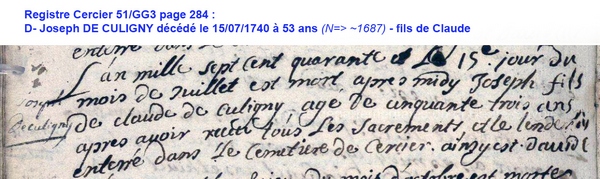 Registre Cercier 51/GG3 page 284 :
D- Joseph DE CULIGNY décédé le 15/07/1740 à 53 ans (N=> ~1687) - fils de Claude
L'an mille sept cent quarante et le 15e jour du
mois de Juillet est mort apres midy Joseph fils
Joseph
De culigny
de claude de Culigny, agé de cinquante trois ans
apres avoir recu tous Les sacrements, et le lendemain
enterré dans Le Cemetiere de Cercier. ainsy est.
mois d'octobre est morte